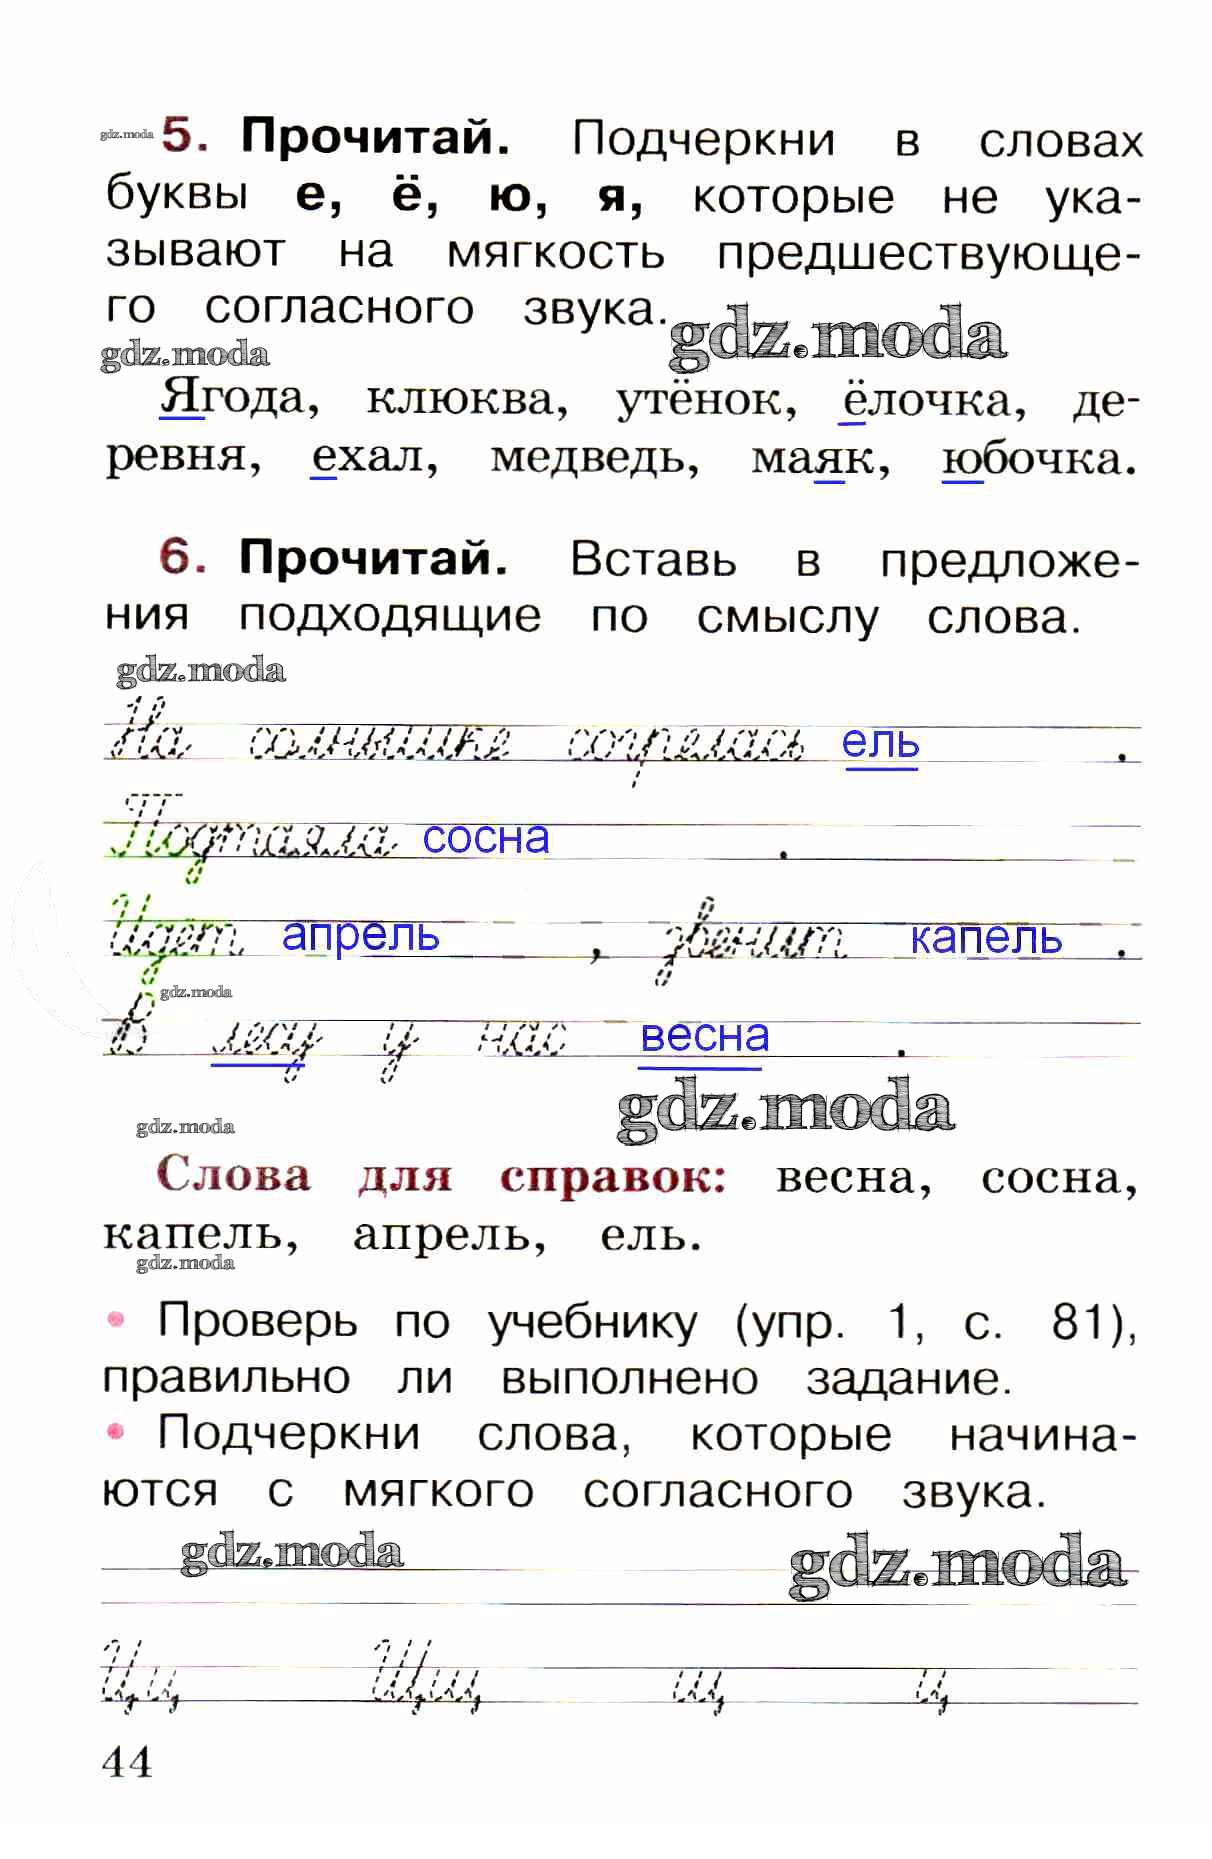 gdz.moda 5. Прочитай. Подчеркни в словах
буквы е, ё, ю, я, которые не ука-
зывают на мягкость предшествующе-
го согласного звука.
gdz.moda gdz.moda
Ягода, клюква, утёнок, ёлочка, де-
ревня, ехал, медведь, маяк, юбочка.
6. Прочитай. Вставь в предложе-
ния подходящие по смыслу слова.
gdz.moda
На солнышке согрелась ель .
Подтаяла сосна .
Идёт апрель , звенит капель .
gdz.moda
В лесу у нас весна .
gdz.moda
gdz.moda
Слова для справок: весна, сосна,
капель, апрель, ель.
gdz.moda
• Проверь по учебнику (упр. 1, с. 81),
правильно ли выполнено задание.
• Подчеркни слова, которые начина-
ются с мягкого согласного звука.
gdz.moda gdz.moda
Цц Щщ щ ц
44